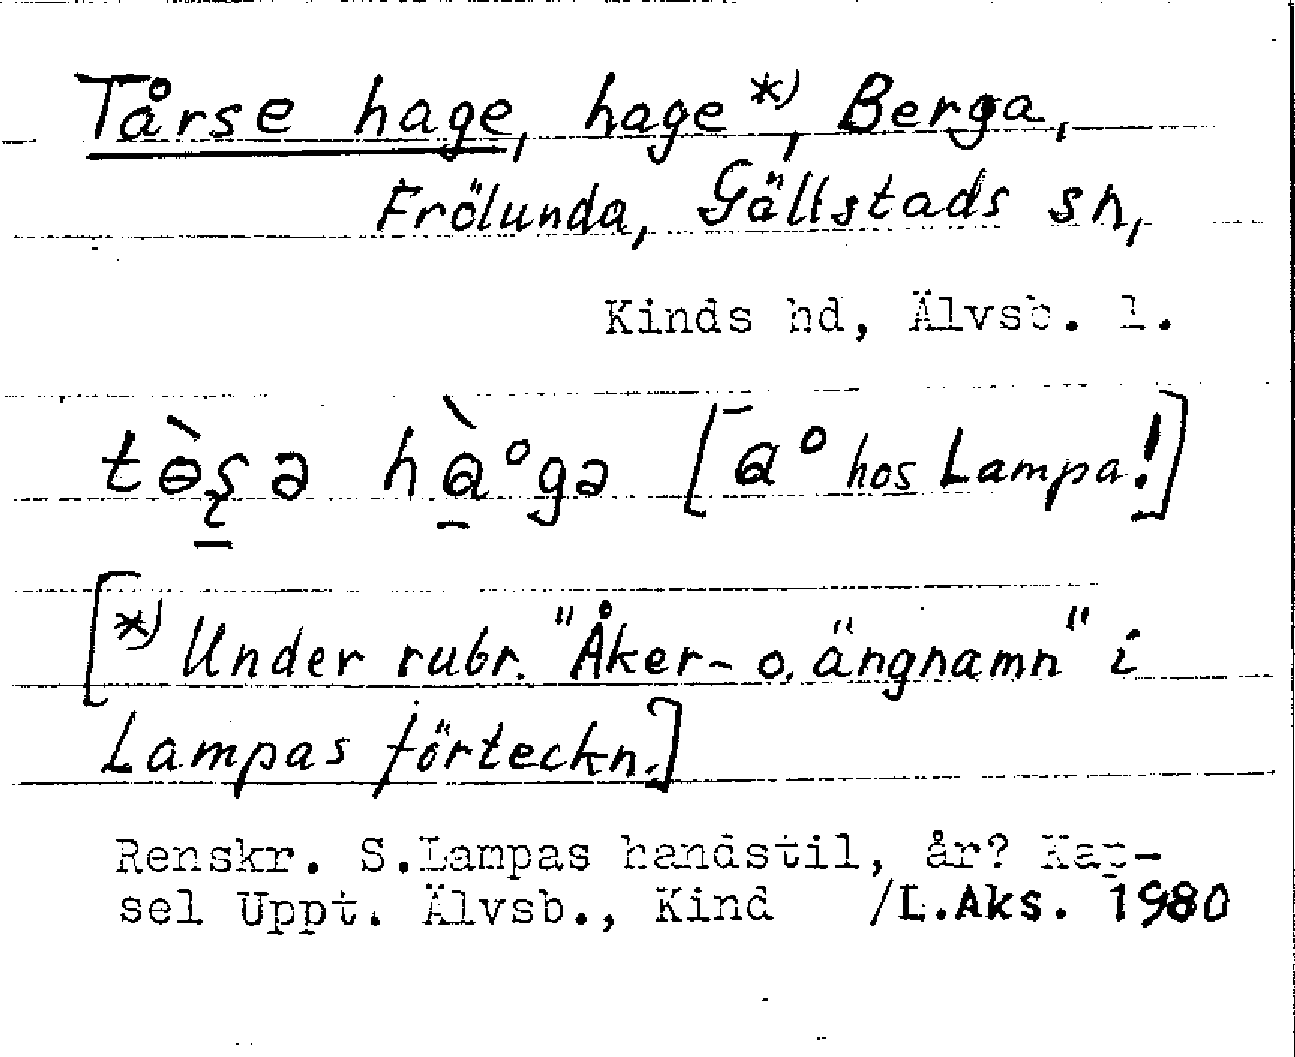 Tårse hage, hage *), Berga,
Frölunda, Gällstads sn,
Kinds hd, Älvsb. l.
tɵ̀ʂə hà̱°gə [a̅° hos Lampa!]
[*) Under rubr. "Åker- o. ängnamn" i
Lampas förteckn.]
Renskr. S.Lampas handstil, år? Kap-
sel Uppt. Älvsb., Kind /L.Aks. 1980